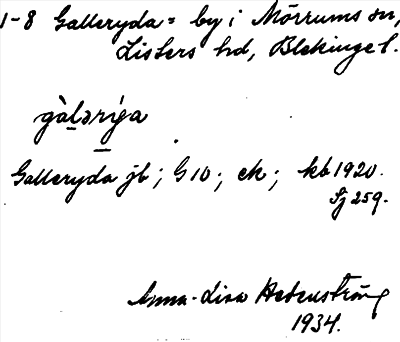 1-8 Galleryda = by i Mörrums sn,
Listers hd, Blekinge l.
gàlәríga
Galleryda jb; G10; ek; kb 1920.
Sj 259.
Anna-Lisa Hedenström
1934.